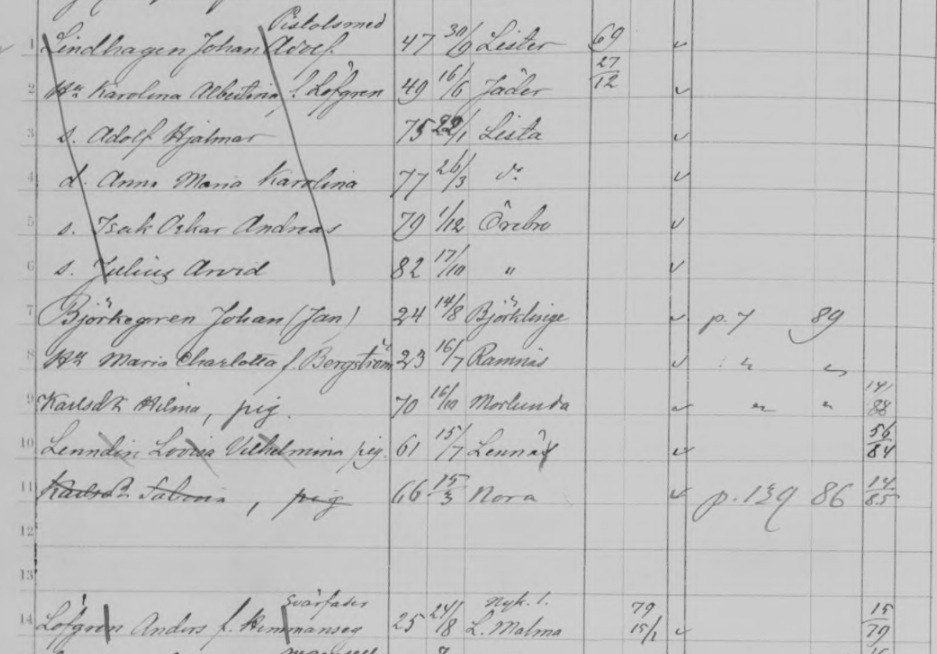 Pistolsmed
1 Lindhagen Johan Adolf 47 30/9 Lister 69
2 Hu Karolina Albertina f. Löfgren 49 16/6 Jäder 27/12
3 s. Adolf Hjalmar 75 22/1 Lista
4 d. Anna Maria Karolina 77 26/3 do
5 s. Isak Oskar Andreas 79 1/12 Örebro
6 s. Julius Arvid 82 17/10 "
7 Björkegren Johan (Jan) 24 14/8 Björklinge p. 7 89
8 Hu Maria Charlotta f. Borgström 23 16/7 Ramnäs " "
9 Karlsdt Hilma, pig. 70 16/10 Mörlunda " " 14/88
10 Lenndin Lovisa Vilhelmina pig. 61 15/7 Lennäs 56/84
11 Karlsdt, pig 66 15/3 Nora p. 139 86 14/85
12
13
Svärfader Nyk. l.
14 Löfgren Anders f. Hemmanseg 25 24/8 L. Malma 79 15/1 15/79